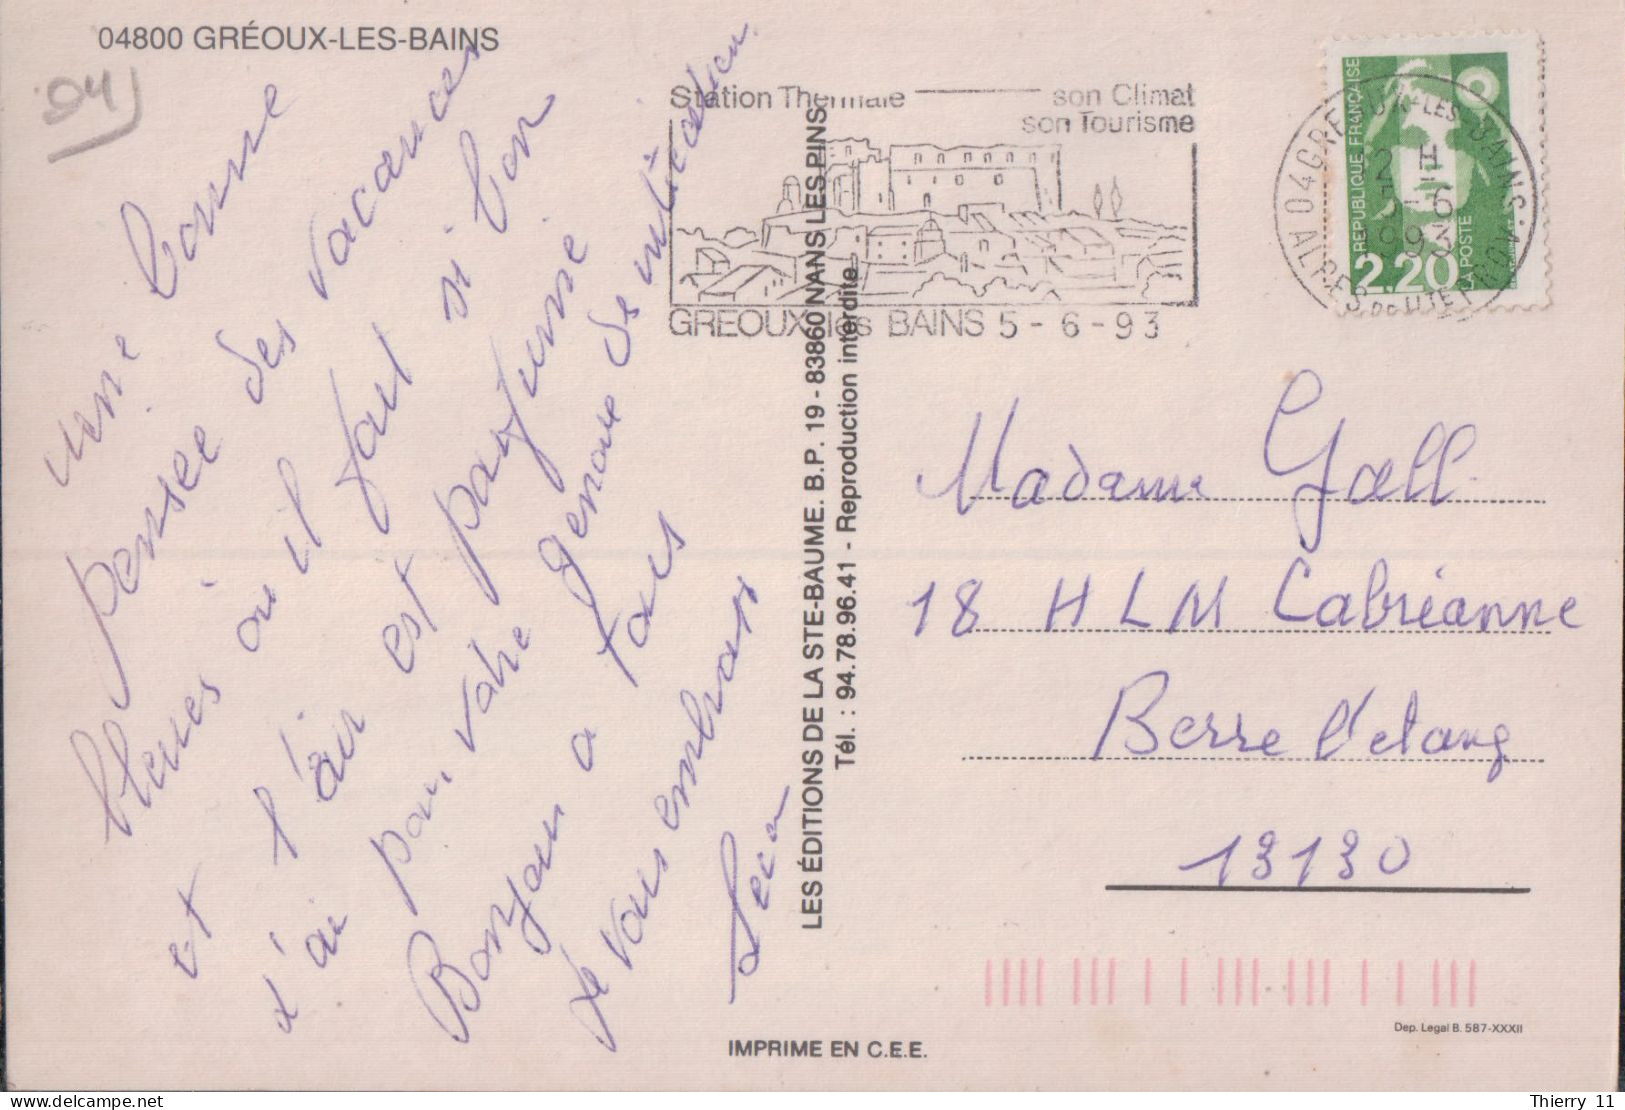 04800 GRÉOUX-LES-BAINS
04
une bonne
pensée des vacances
bleues où il fait si bon
et l'air est parfumé
d'ai
pour votre genoue de
Bonjour a tous
Je vous embrass
Station Thermale son Climat
son Tourisme
GREOUX les BAINS 5 - 6 - 93
04 GREOUX-LES-BAINS
ALPES DE HTE PROV.
5-6
93
REPUBLIQUE FRANÇAISE
2,20
LA POSTE
LES ÉDITIONS DE LA STE-BAUME. B.P. 19 - 83860 NANS LES PINS
Tél. : 94.78.96.41 - Reproduction interdite
Madame Gall
18 HLM Cabréanne
Berre l'etang
13130
Dep. Legal B. 587-XXXII
IMPRIME EN C.E.E.
Thierry 11